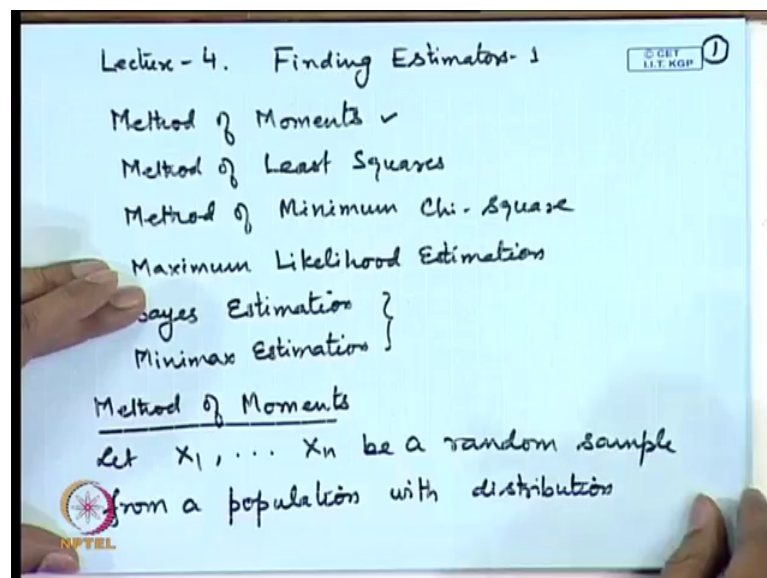 Lecture - 4. Finding Estimators - 1
© CET
I.I.T. KGP
1
Method of Moments ✓
Method of Least Squares
Method of Minimum Chi-Square
Maximum Likelihood Estimation
Bayes Estimation }
Minimax Estimation }
Method of Moments
Let X1, ... Xn be a random sample
from a population with distribution
NPTEL